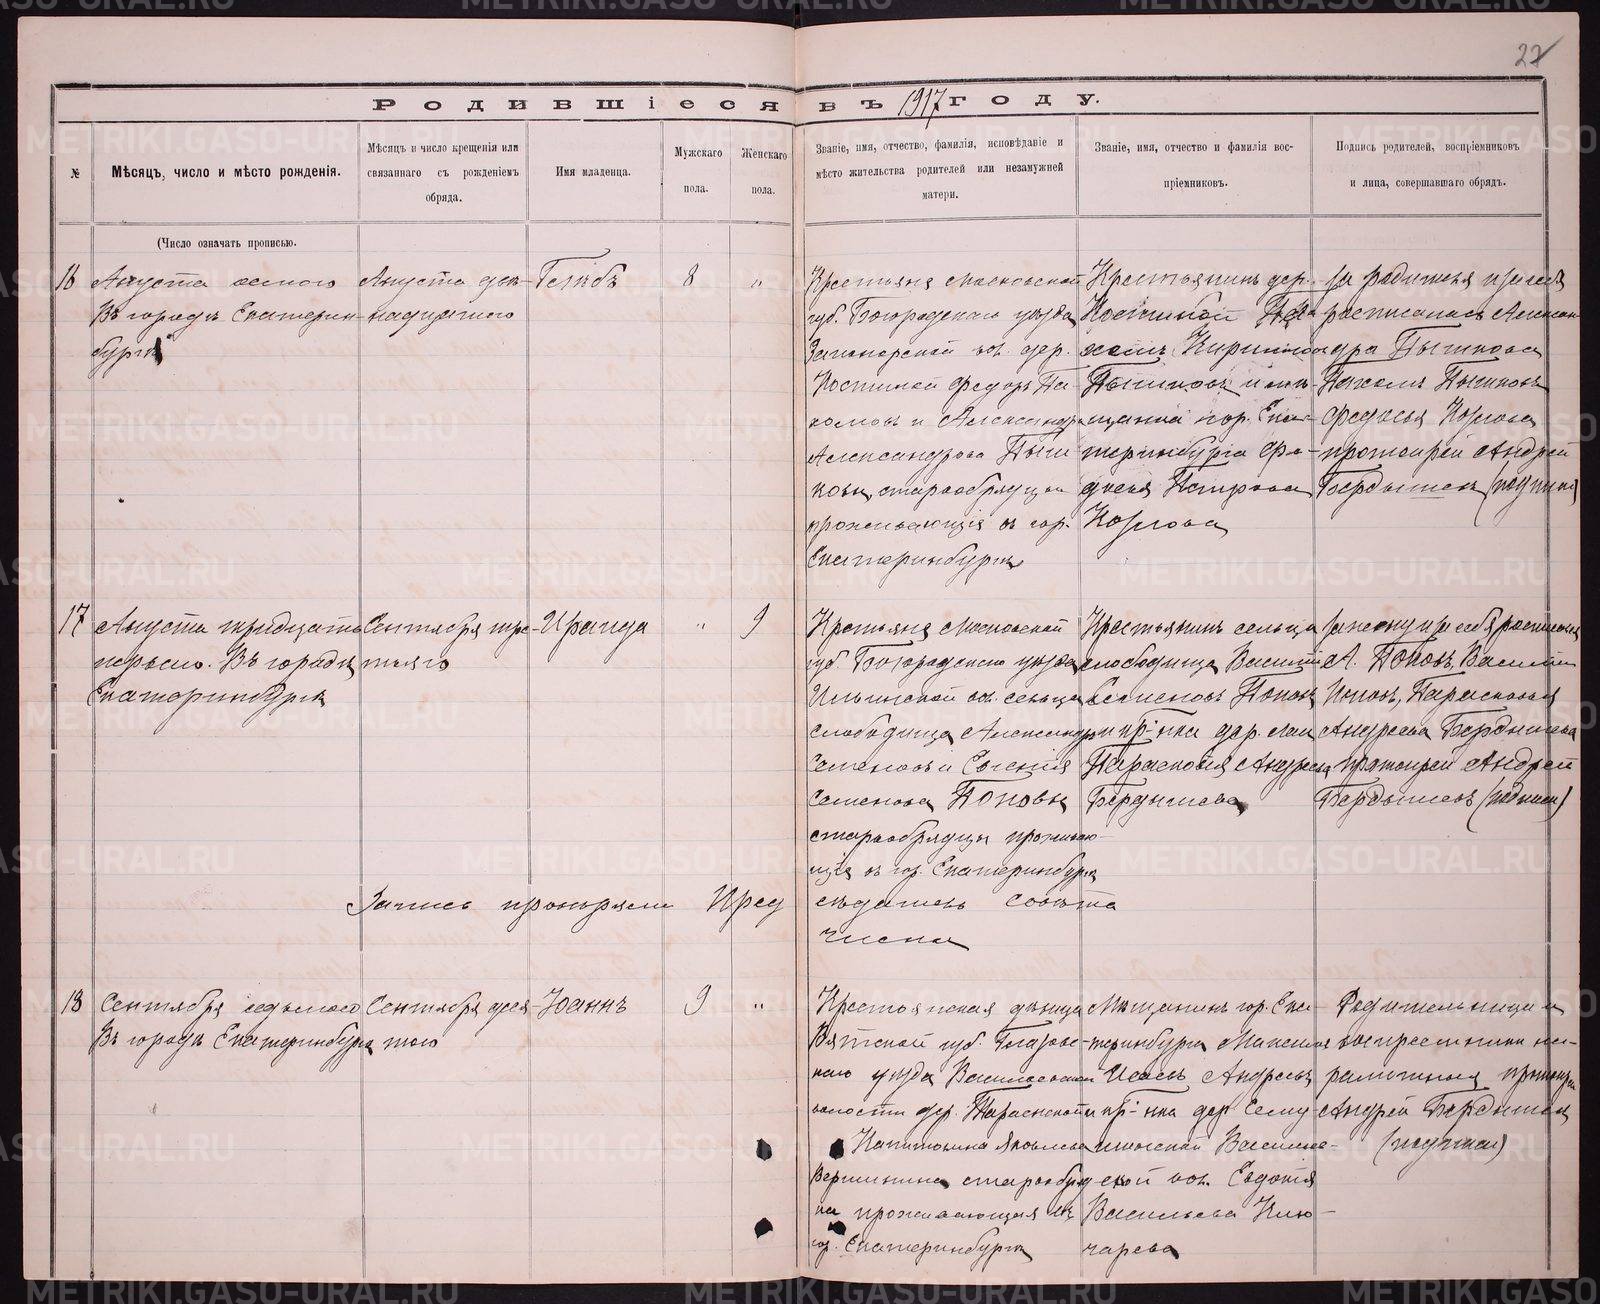 22
Родившіеся въ 1917 году.
№
Мѣсяцъ, число и мѣсто рожденія.
Мѣсяцъ и число крещенія или
связаннаго съ рожденіемъ
обряда.
Имя младенца.
Мужскаго
пола.
Женскаго
пола.
Званіе, имя, отчество, фамилія, исповѣданіе и
мѣсто жительства родителей или незамужней
матери.
Званіе, имя, отчество и фамилія вос-
пріемниковъ.
Подпись родителей, воспріемниковъ
и лица, совершавшаго обрядъ.
(Число означать прописью.
16
Августа осмого
Въ городѣ Екатерин-
бургѣ
Августа две-
надцатого
Глѣбъ
8
"
Крестьяне Московской
губ. Богородскаго уѣзда
Запонорской вол. дер.
Костиной Федоръ Па-
хомовъ и Александра
Александрова Пыш-
ковы, старообрядцы
проживающіе въ гор.
Екатеринбургѣ
Крестьянинъ дер.
Костиной Па-
хомъ
Пышковъ и мѣ-
щанка гор. Ека-
теринбурга Фе-
досья Петрова
Козлова
за родителя и за себя
расписалась Алексан-
дра Пышкова
Пахомъ Пышковъ
Федосья Козлова
протоіерей Андрей
Бердышевъ (подписи)
17
Августа тридцать
перваго. Въ городѣ
Екатеринбургѣ
Сентября тре-
тьяго
Ираида
"
9
Крестьяне Московской
губ. Богородскаго уѣзда
Ильинской вол. сельца
слободища Александръ
Семеновъ и Евгенія
Семенова Поповы
старообрядцы прожива-
щіе въ гор. Екатеринбургѣ
Крестьянинъ сельца
слободища Василій
Семеновъ Поповъ
и кр-нка дер.
Парасковія Андреева
Бердышева
за жену и за себя росписался
А. Поповъ, Василій
Поповъ, Парасковья
Андреева Бердышева
протоіерей Андрей
Бердышевъ (подписи)
Запись провѣряли Пред
сѣдатель Совѣта
члены
18
Сентября седьмого
Въ городѣ Екатеринбургѣ
Сентября деся-
того
Іоаннъ
9
"
Крестьянская дѣвица
Вятской губ. Глазовс-
каго уѣзда Васильевской
волости дер.
Капитолина Яковлева
Вершинина старообряд
ка проживающая въ
гор. Екатеринбургѣ
Мѣщанинъ гор. Ека-
теринбурга
Исаевъ Андреевъ
и кр-нка дер.
Василье-
ской вол. Евдокія
Васильева Клю-
чарева
Родительница и
воспреемники не-
грамотныя протоіерей
Андрей Бердышевъ
(подписи)
METRIKI.GASO-URAL.RU